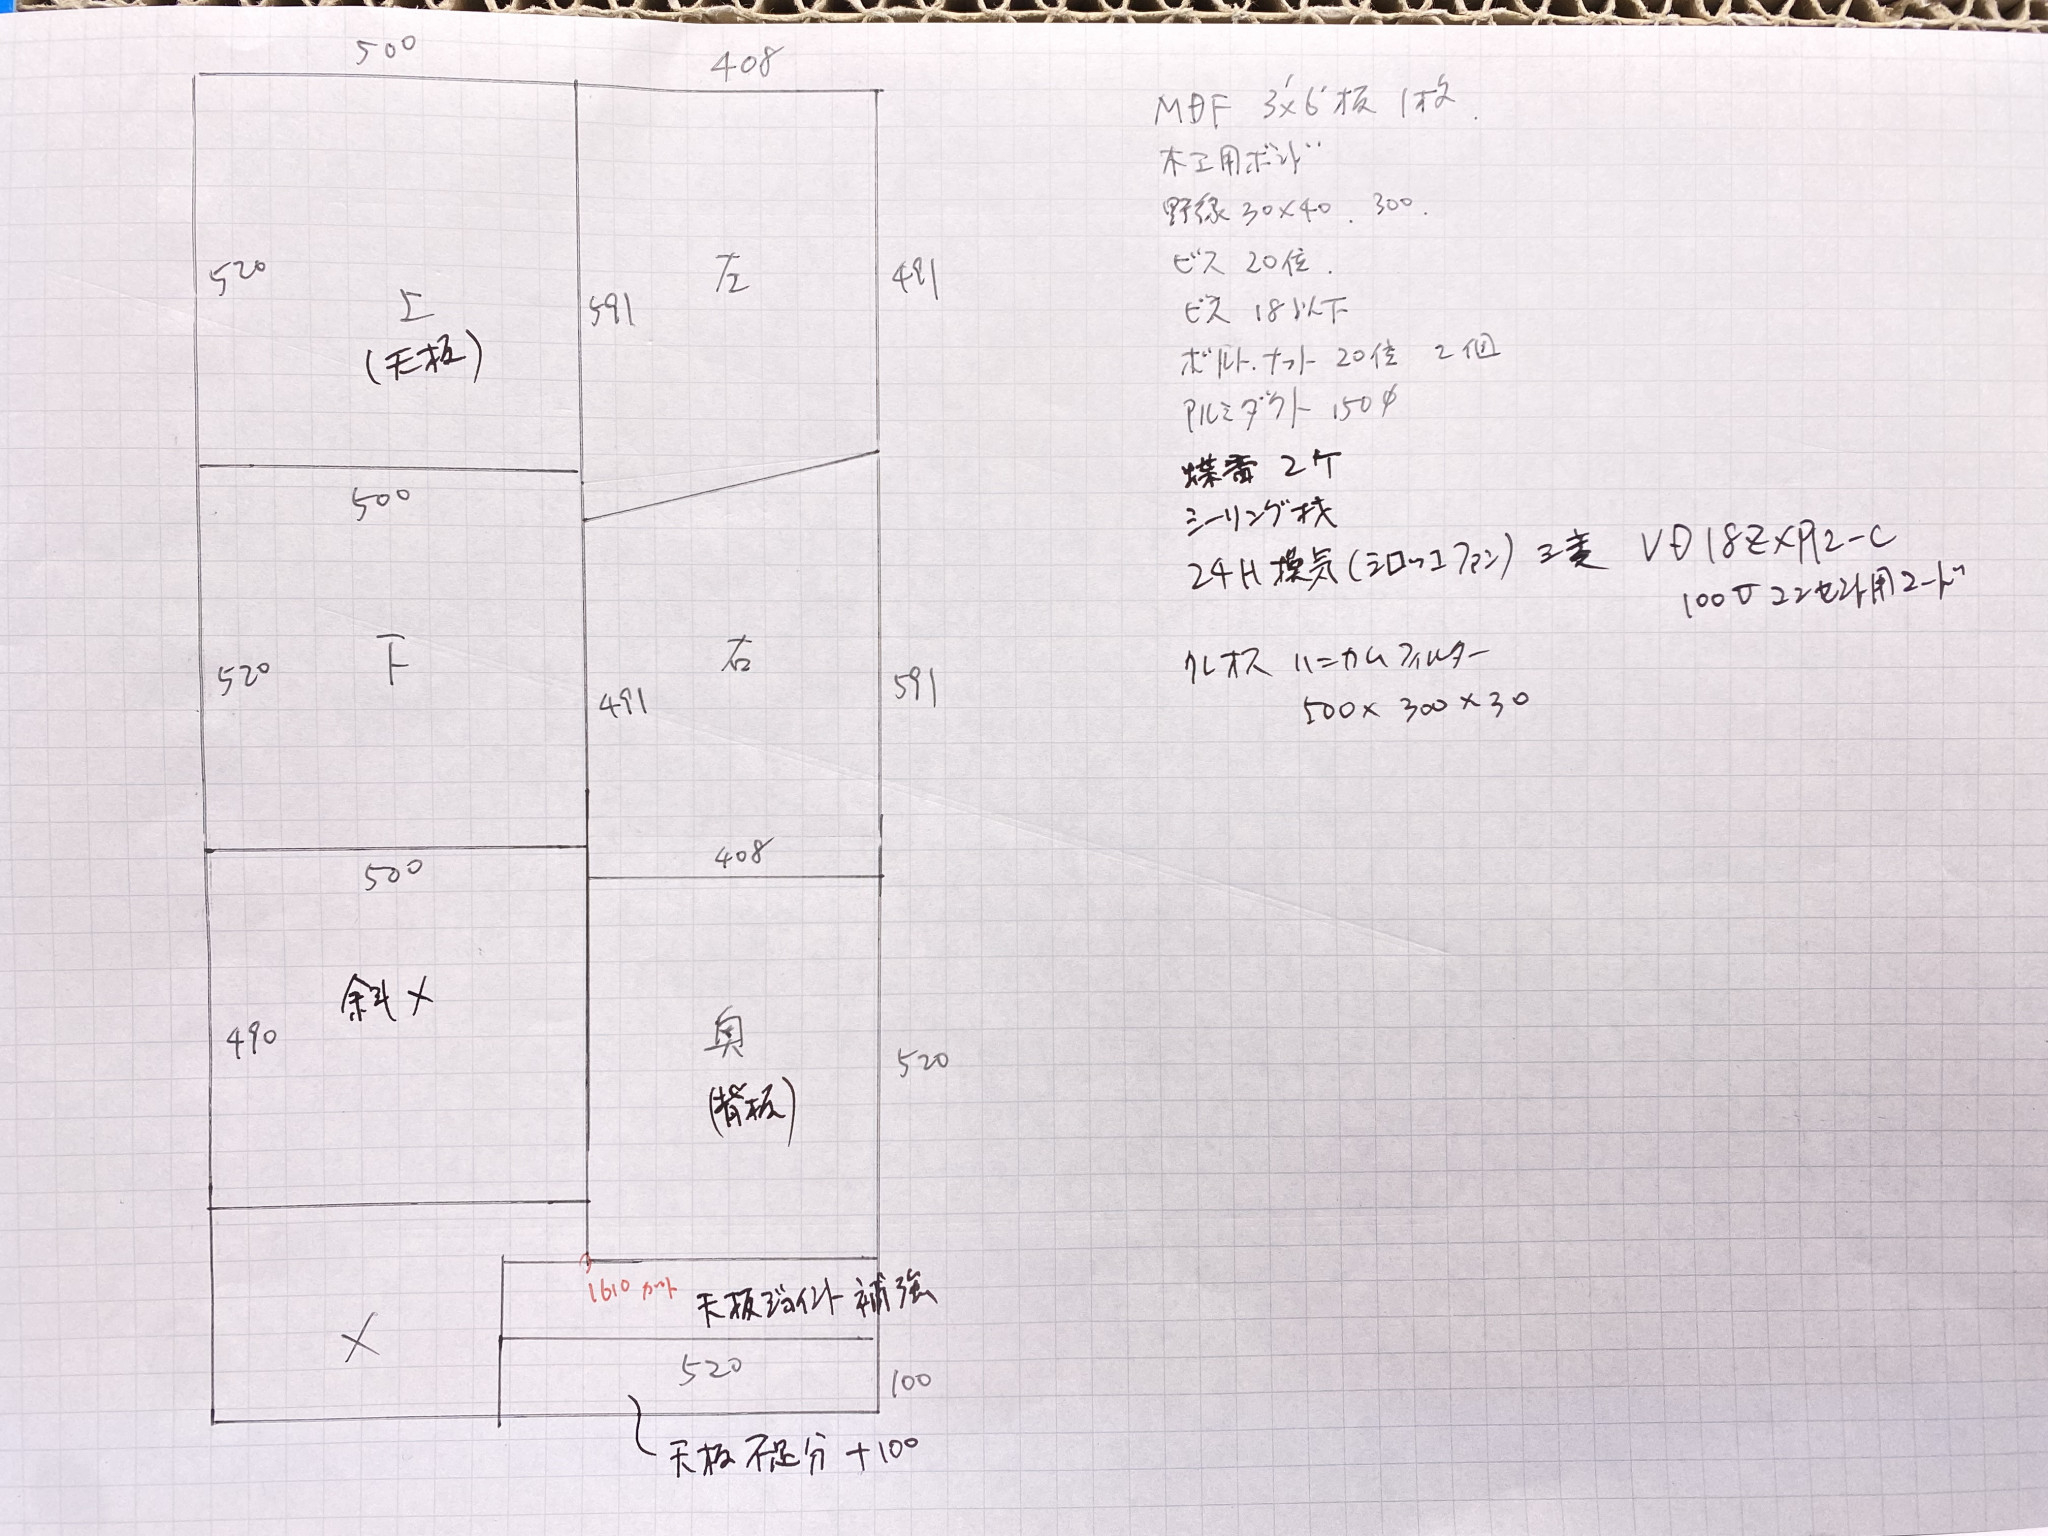 500
408
520
上
(天板)
591
左
491
500
520
下
491
右
591
500
408
490
斜メ
奥
(背板)
520
1610 カット
天板ジョイント補強
×
520
100
天板不足分 +100
MDF 3'×6' 板 1枚.
木工用ボンド
野縁 30×40. 300.
ビス 20位.
ビス 18以下
ボルト.ナット 20位 2個
アルミダクト 150φ
蝶番 2ケ
シーリング材
24H換気(シロッコファン) 三菱 VD18ZXP12-C
100V コンセント用コード
クレオス ハニカムフィルター
500×300×30